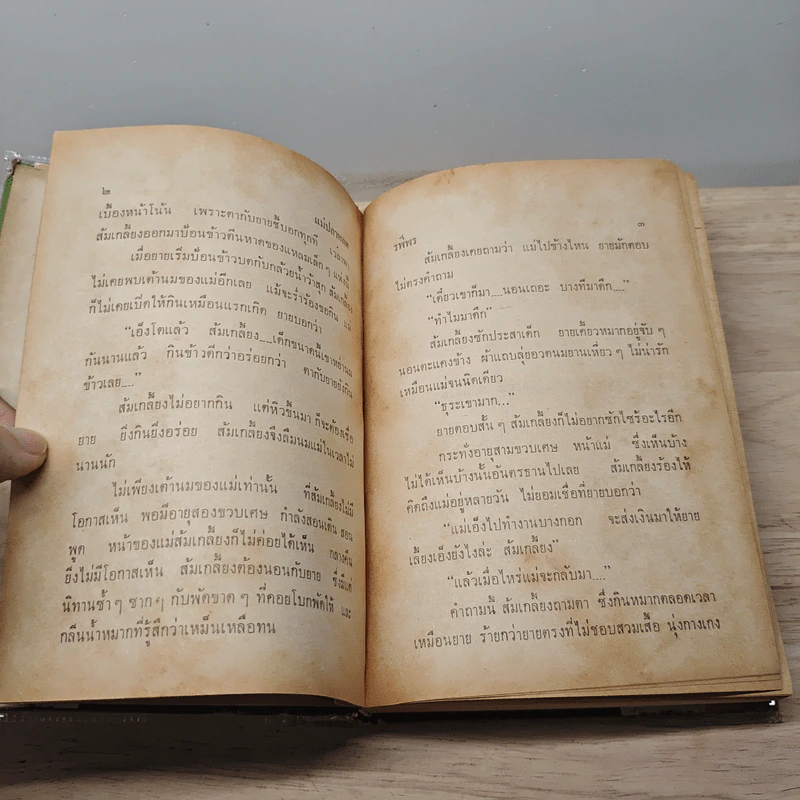 ๒
แม่ปลาบู่
เบื้องหน้าโน้น เพราะตากับยายชี้บอกทุกที เวลาพา
ส้มเกลี้ยงออกมาป้อนข้าวตีนหาดของแหลมเล็กๆ แห่งนี้
เมื่อยายเริ่มป้อนข้าวบดกับกล้วยน้ำว้าสุก ส้มเกลี้ยง
ไม่เคยพบเต้านมของแม่อีกเลย แม้จะร่ำร้องขอกิน แม่
ก็ไม่เคยเปิดให้กินเหมือนแรกเกิด ยายบอกว่า
“เอ็งโตแล้ว ส้มเกลี้ยง....เด็กขนาดนี้เขาหย่านม
กันนานแล้ว กินข้าวดีกว่าอร่อยกว่า ตากับยายยังกิน
ข้าวเลย....”
ส้มเกลี้ยงไม่อยากกิน แต่หิวขึ้นมา ก็จะต้องเชื่อ
ยาย ยิ่งกินยิ่งอร่อย ส้มเกลี้ยงจึงลืมนมแม่ในเวลาไม่
นานนัก
ไม่เพียงเต้านมของแม่เท่านั้น ที่ส้มเกลี้ยงไม่มี
โอกาสเห็น พอมีอายุสองขวบเศษ กำลังสอนเดิน สอน
พูด หน้าของแม่ส้มเกลี้ยงก็ไม่ค่อยได้เห็น กลางคืน
ยิ่งไม่มีโอกาสเห็น ส้มเกลี้ยงต้องนอนกับยาย ซึ่งมีแต่
นิทานซ้ำๆ ซากๆ กับพัดขาดๆ ที่คอยโบกพัดให้ และ
กลิ่นน้ำหมากที่รู้สึกว่าเหม็นเหลือทน
๓
รพีพร
ส้มเกลี้ยงเคยถามว่า แม่ไปข้างไหน ยายมักตอบ
ไม่ตรงคำถาม
“เดี๋ยวเขาก็มา....นอนเถอะ บางทีมาดึก....”
“ทำไมมาดึก”
ส้มเกลี้ยงซักประสาเด็ก ยายเคี้ยวหมากอยู่จับๆ
นอนตะแคงข้าง ผ้าแถบลุ่ยอวดนมยานเหี่ยวๆ ไม่น่ารัก
เหมือนแม่จนนิดเดียว
“ธุระเขามาก...”
ยายตอบสั้นๆ ส้มเกลี้ยงก็ไม่อยากซักไซ้อะไรอีก
กระทั่งอายุสามขวบเศษ หน้าแม่ ซึ่งเห็นบ้าง
ไม่ได้เห็นบ้างนั้นอันตรธานไปเลย ส้มเกลี้ยงร้องไห้
คิดถึงแม่อยู่หลายวัน ไม่ยอมเชื่อที่ยายบอกว่า
“แม่เอ็งไปทำงานบางกอก จะส่งเงินมาให้ยาย
เลี้ยงเอ็งยังไงล่ะ ส้มเกลี้ยง”
“แล้วเมื่อไหร่แม่จะกลับมา....”
คำถามนี้ ส้มเกลี้ยงถามตา ซึ่งกินหมากตลอดเวลา
เหมือนยาย ร้ายกว่ายายตรงที่ไม่ชอบสวมเสื้อ นุ่งกางเกง